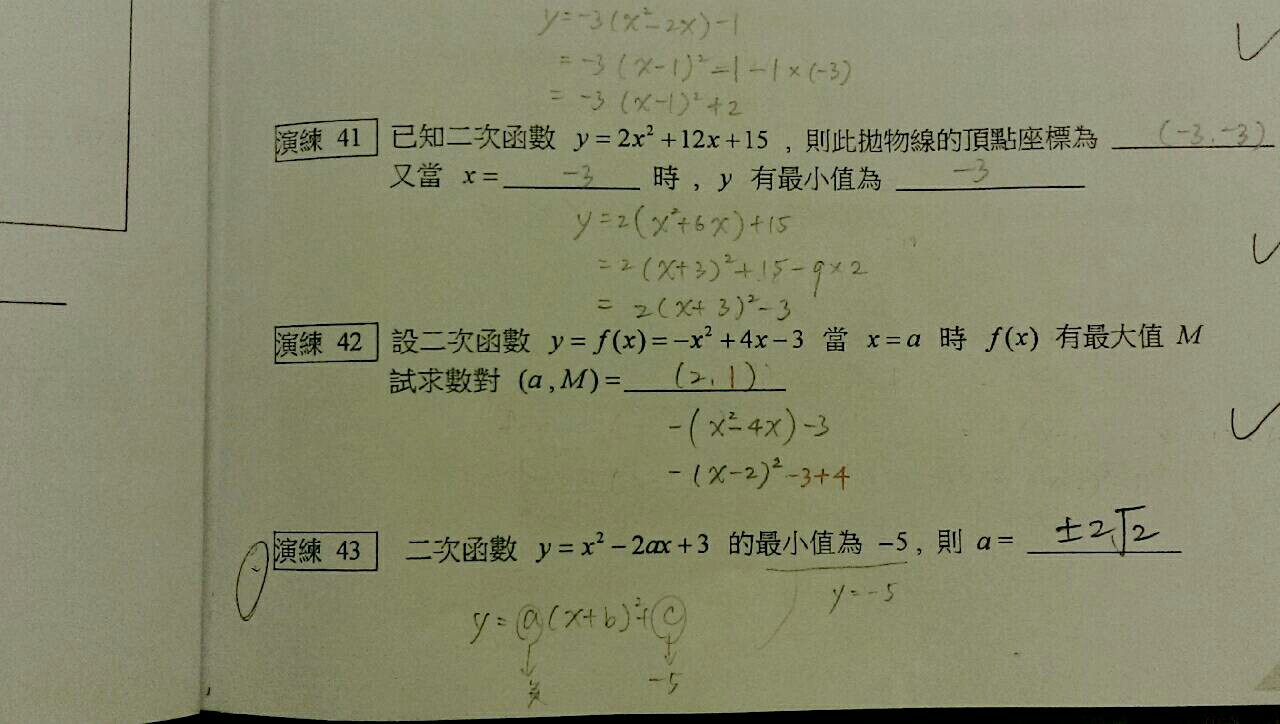 y=-3(x²-2x)-1
= -3(x-1)²=1-1×(-3)
= -3(x-1)²+2
演練 41 已知二次函數 y=2x²+12x+15，則此拋物線的頂點座標為 (-3,-3)
又當 x= -3 時，y 有最小值為 -3
y=2(x²+6x)+15
=2(x+3)²+15-9×2
= 2(x+3)²-3
演練 42 設二次函數 y=f(x)=-x²+4x-3 當 x=a 時 f(x) 有最大值 M
試求數對 (a,M)= (2,1)
-(x²-4x)-3
-(x-2)²-3+4
演練 43 二次函數 y=x²-2ax+3 的最小值為 -5，則 a= ±2√2
y=-5
y=a(x+b)²+c
-5